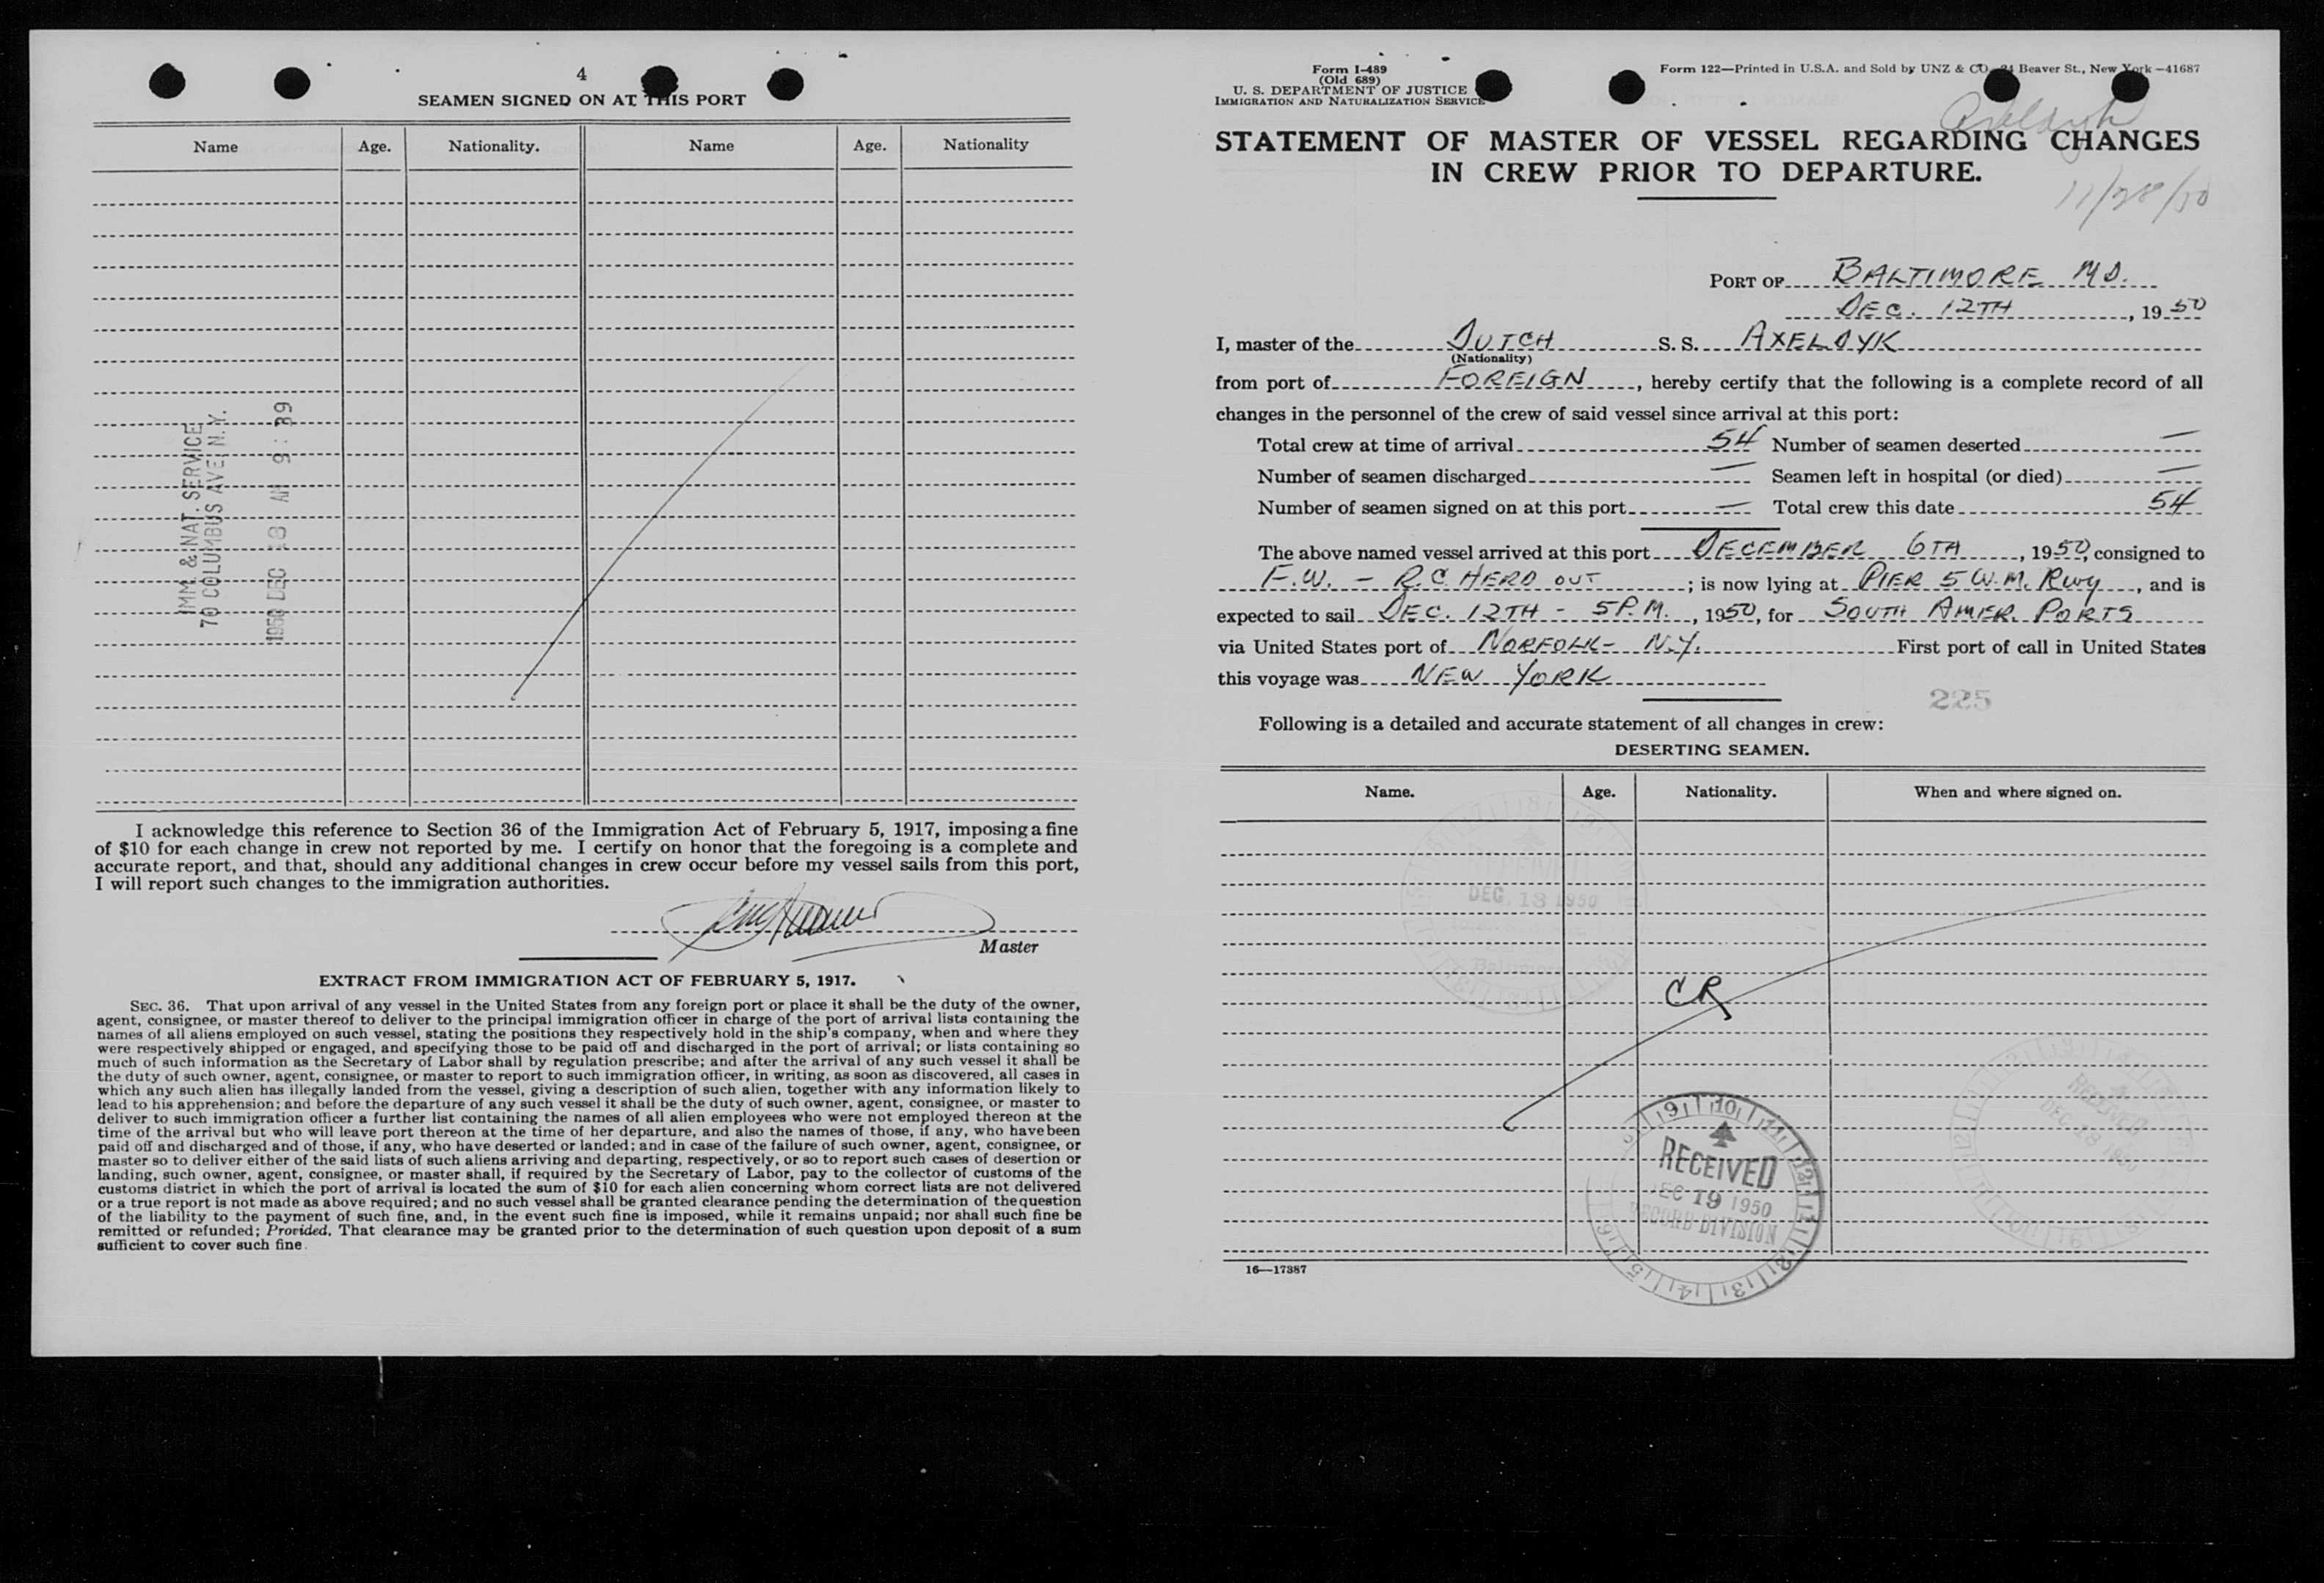 4
SEAMEN SIGNED ON AT THIS PORT
Name Age. Nationality. Name Age. Nationality
IMM. & NAT. SERVICE
70 COLUMBUS AVE. N.Y.
1950 DEC 13 AM 9:39
I acknowledge this reference to Section 36 of the Immigration Act of February 5, 1917, imposing a fine
of $10 for each change in crew not reported by me. I certify on honor that the foregoing is a complete and
accurate report, and that, should any additional changes in crew occur before my vessel sails from this port,
I will report such changes to the immigration authorities.
Master
EXTRACT FROM IMMIGRATION ACT OF FEBRUARY 5, 1917.
SEC. 36. That upon arrival of any vessel in the United States from any foreign port or place it shall be the duty of the owner,
agent, consignee, or master thereof to deliver to the principal immigration officer in charge of the port of arrival lists containing the
names of all aliens employed on such vessel, stating the positions they respectively hold in the ship's company, when and where they
were respectively shipped or engaged, and specifying those to be paid off and discharged in the port of arrival; or lists containing so
much of such information as the Secretary of Labor shall by regulation prescribe; and after the arrival of any such vessel it shall be
the duty of such owner, agent, consignee, or master to report to such immigration officer, in writing, as soon as discovered, all cases in
which any such alien has illegally landed from the vessel, giving a description of such alien, together with any information likely to
lead to his apprehension; and before the departure of any such vessel it shall be the duty of such owner, agent, consignee, or master to
deliver to such immigration officer a further list containing the names of all alien employees who were not employed thereon at the
time of the arrival but who will leave port thereon at the time of her departure, and also the names of those, if any, who have been
paid off and discharged and of those, if any, who have deserted or landed; and in case of the failure of such owner, agent, consignee, or
master so to deliver either of the said lists of such aliens arriving and departing, respectively, or so to report such cases of desertion or
landing, such owner, agent, consignee, or master shall, if required by the Secretary of Labor, pay to the collector of customs of the
customs district in which the port of arrival is located the sum of $10 for each alien concerning whom correct lists are not delivered
or a true report is not made as above required; and no such vessel shall be granted clearance pending the determination of the question
of the liability to the payment of such fine, and, in the event such fine is imposed, while it remains unpaid; nor shall such fine be
remitted or refunded; Provided, That clearance may be granted prior to the determination of such question upon deposit of a sum
sufficient to cover such fine.
Form I-489
(Old 689)
U. S. DEPARTMENT OF JUSTICE
IMMIGRATION AND NATURALIZATION SERVICE
Form 122—Printed in U.S.A. and Sold by UNZ & CO. 24 Beaver St., New York—41687
STATEMENT OF MASTER OF VESSEL REGARDING CHANGES
IN CREW PRIOR TO DEPARTURE.
11/28/50
PORT OF BALTIMORE MD.
DEC. 12TH, 1950
I, master of the DUTCH S. S. AXELDYK
(Nationality)
from port of FOREIGN, hereby certify that the following is a complete record of all
changes in the personnel of the crew of said vessel since arrival at this port:
Total crew at time of arrival 54 Number of seamen deserted —
Number of seamen discharged — Seamen left in hospital (or died) —
Number of seamen signed on at this port — Total crew this date 54
The above named vessel arrived at this port DECEMBER 6TH, 1950, consigned to
F.W. - R.C. HERD OUT; is now lying at PIER 5 W.M. Rwy, and is
expected to sail DEC. 12TH - 5 P.M., 1950, for SOUTH AMER. PORTS
via United States port of NORFOLK - N.Y. First port of call in United States
this voyage was NEW YORK
225
Following is a detailed and accurate statement of all changes in crew:
DESERTING SEAMEN.
Name. Age. Nationality. When and where signed on.
RECEIVED
DEC 13 1950
CR
RECEIVED
DEC 13 1950
RECEIVED
DEC 19 1950
RECORD DIVISION
16—17387